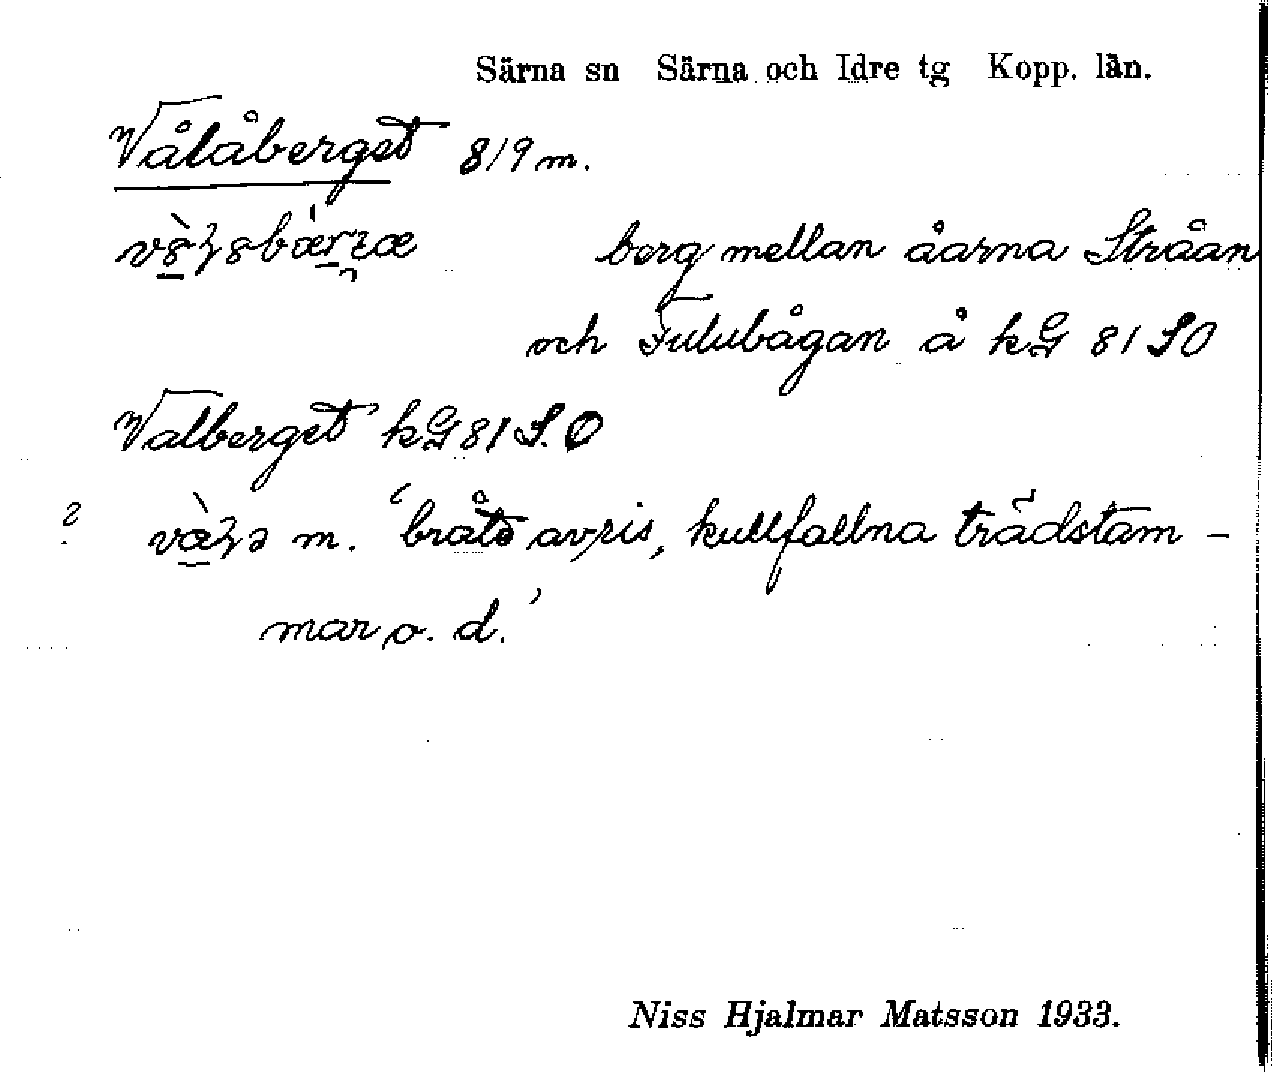 Särna sn Särna och Idre tg Kopp. län.
Vålåberget 819 m.
berg mellan åarna Stråan
och Fulubågan å kG 81 SO
Valberget kG 81 S.O
? m. 'bråte av ris, kullfallna trädstam-
mar o. d.'
Niss Hjalmar Matsson 1933.